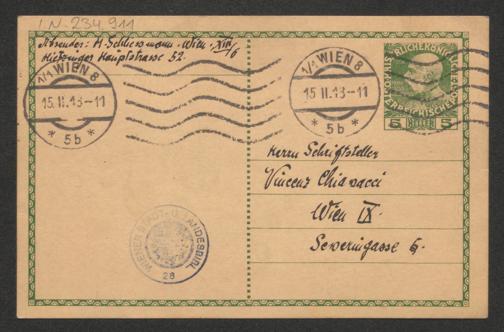 I.N. 234 911
Absender: H. Schliessmann. Wien. XIII/6
Hietzinger Hauptstrasse 52.
1/1 WIEN 8
15.II.13-11
* 5b *
1/1 WIEN 8
15.II.13-11
* 5b *
5 HELLER 5
Herrn Schriftsteller
Vincenz Chiavacci
Wien IX.
Severingasse 6.
WIENER STADT- U. LANDESBIBL.
28